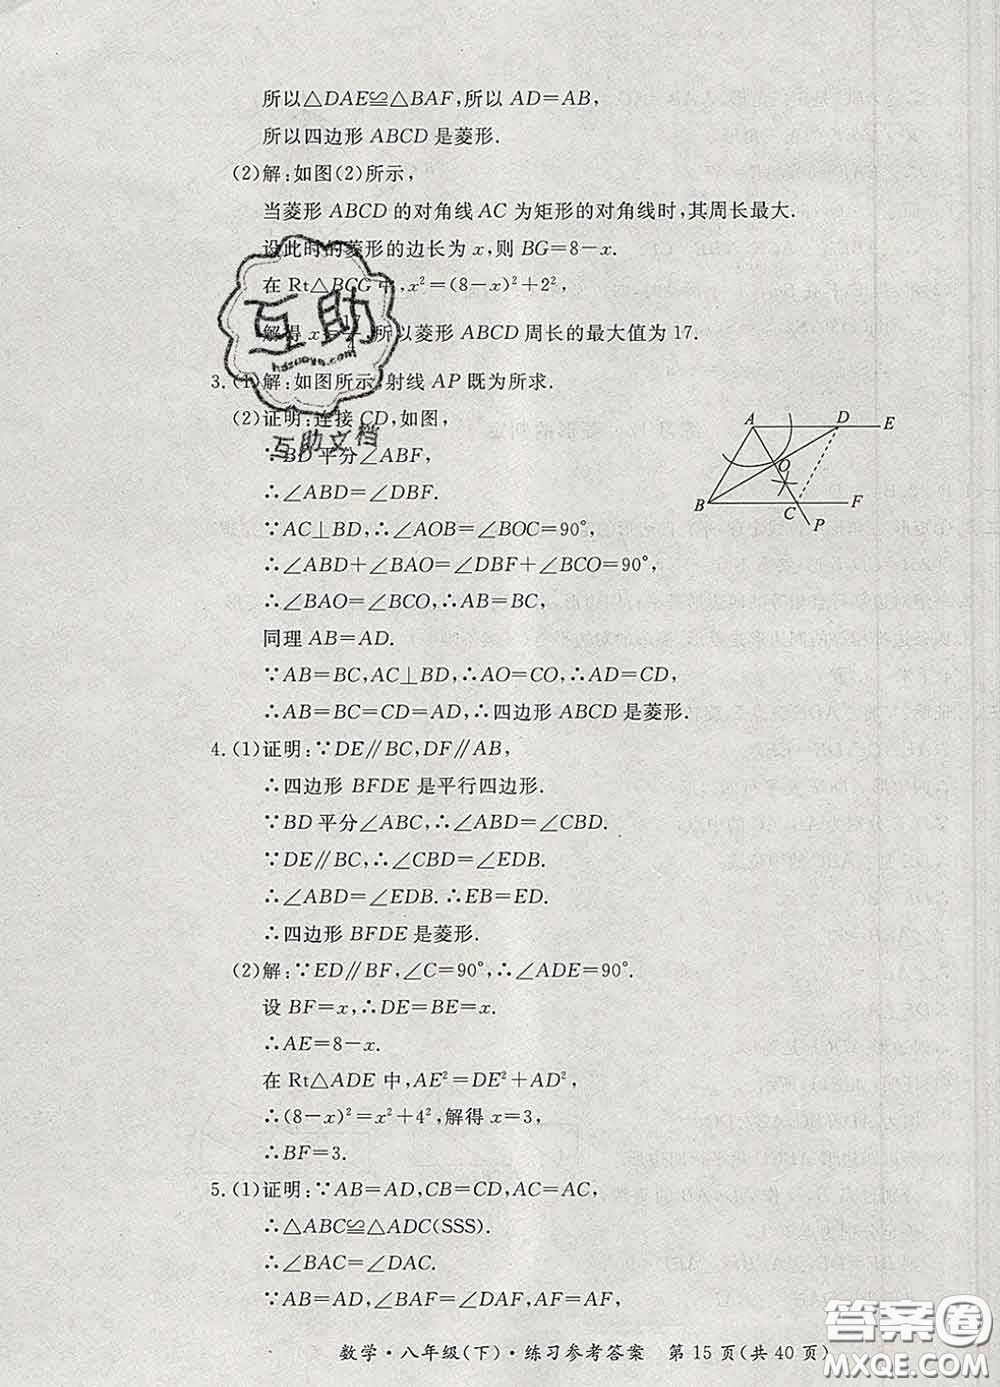 所以△DAE≌△BAF,所以 AD=AB,
所以四边形 ABCD 是菱形.
(2)解:如图(2)所示,
当菱形 ABCD 的对角线 AC 为矩形的对角线时,其周长最大.
设此时的菱形的边长为 x,则 BG=8-x.
在 Rt△BCG 中,x²=(8-x)²+2²,
解得 x= ,所以菱形 ABCD 周长的最大值为 17.
3.(1)解:如图所示,射线 AP 既为所求.
(2)证明:连接 CD,如图,
∵BD 平分∠ABF,
∴∠ABD=∠DBF.
∵AC⊥BD,∴∠AOB=∠BOC=90°,
∴∠ABD+∠BAO=∠DBF+∠BCO=90°,
∴∠BAO=∠BCO,∴AB=BC,
同理 AB=AD.
∵AB=BC,AC⊥BD,∴AO=CO,∴AD=CD,
∴AB=BC=CD=AD,∴四边形 ABCD 是菱形.
A
D
E
O
B
C
F
P
4.(1)证明:∵DE∥BC,DF∥AB,
∴四边形 BFDE 是平行四边形.
∵BD 平分∠ABC,∴∠ABD=∠CBD.
∵DE∥BC,∴∠CBD=∠EDB.
∴∠ABD=∠EDB.∴EB=ED.
∴四边形 BFDE 是菱形.
(2)解:∵ED∥BF,∠C=90°,∴∠ADE=90°.
设 BF=x,∴DE=BE=x.
∴AE=8-x.
在 Rt△ADE 中,AE²=DE²+AD²,
∴(8-x)²=x²+4²,解得 x=3,
∴BF=3.
5.(1)证明:∵AB=AD,CB=CD,AC=AC,
∴△ABC≌△ADC(SSS).
∴∠BAC=∠DAC.
∵AB=AD,∠BAF=∠DAF,AF=AF,
数学·八年级(下)·练习参考答案 第 15 页(共 40 页)
互助
hdzuoye.com
互助文档
答案圈
MXQE.COM